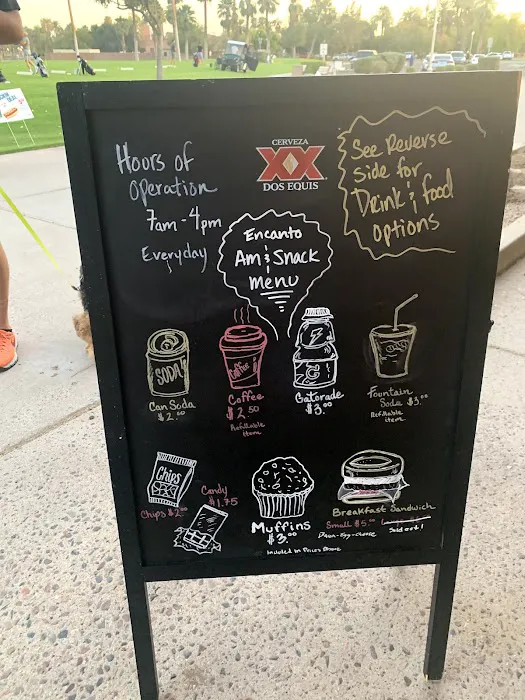 Hours of
operation
7am - 4pm
Everyday
CERVEZA
XX
DOS EQUIS
See Reverse
side for
Drink & food
options
Encanto
Am & Snack
menu
SODA
Can Soda
$2.00
Coffee
Coffee
$2.50
Refillable
item
G
Gatorade
$3.00
Fountain
Soda $3.00
Refillable
item
Chips
Chips $2.00
Candy
$1.75
Muffins
$3.00
Breakfast Sandwich
Small $5.00
Sold out!
-Egg-cheese
Included in Prices Above